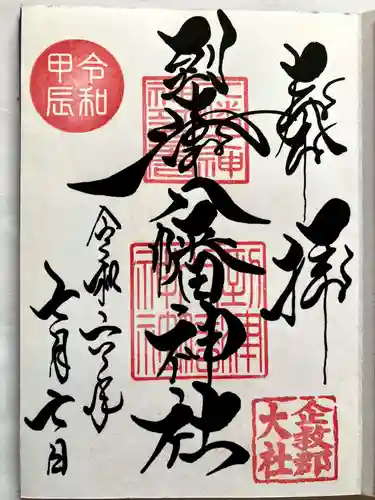 奉拝
企救郡
大社
到津八幡神社
令和
甲辰
令和六年
七月七日